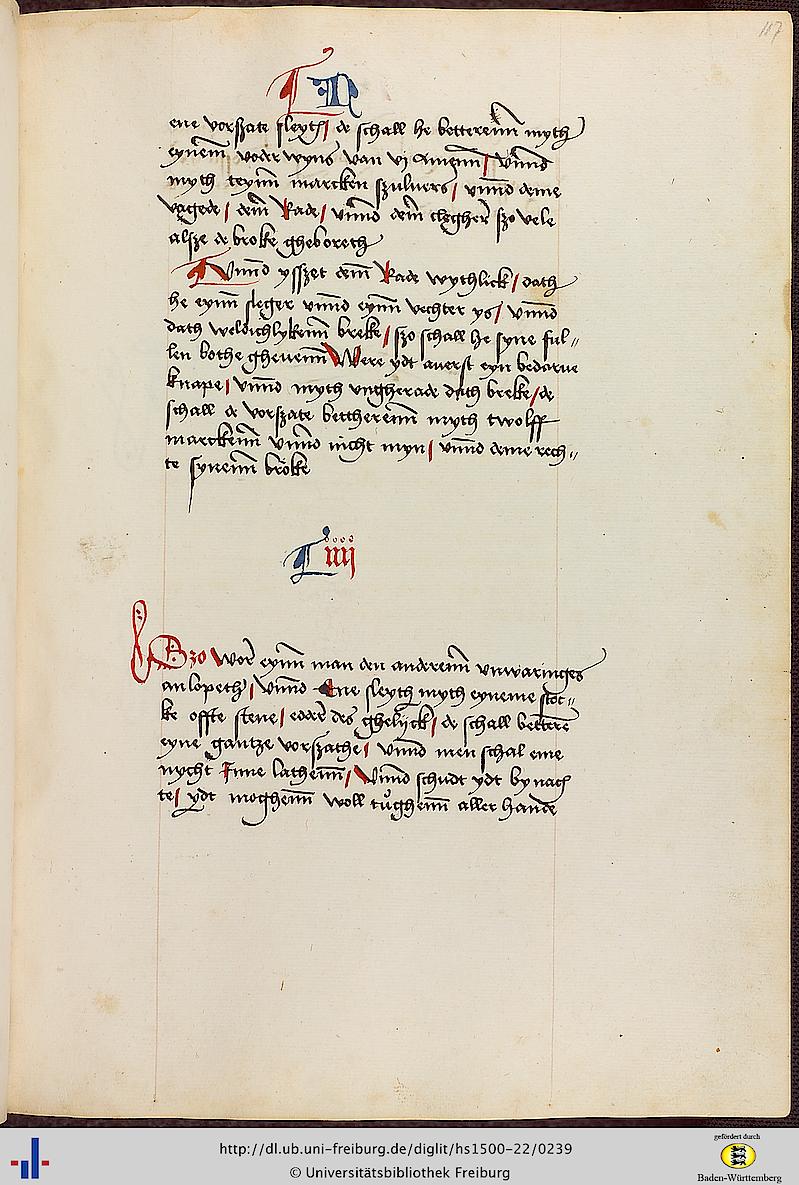 117
L N
ene vorszate sleyth / de schall he betterenn myth
eynem voder wyns van vj Amenn / vnnd
myth teynn marcken szuluers / vnnd deme
vagede / dem Rade / vnnd dem clegher szo vele
alsze de broke gheboreth
Vnnd ysszet dem Rade wythlick / dath
he eynn sleger vnnd eynn vechter ys / vnnd
dath weldichlykenn breke / szo schall he syne ful-
len bothe gheuenn Were ydt auerst eyn bedarue
knape / vnnd myth vngherade dath breke / de
schall de vorszate bettherenn myth twolff
marckenn vnnd nicht myn / vnnd deme rech-
te synenn broke
L iiij
Szo wor eynn man den anderenn vnwaringes
anlopeth / vnnd Ene sleyth myth eyneme stoc-
ke offte stene / edder des ghelyck / de schall bettere
eyne gantze vorszathe / vnnd men schal eme
nycht Inne lathenn / Vnnd schudt ydt by nach
te / ydt moghenn woll tughenn aller hande
http://dl.ub.uni-freiburg.de/diglit/hs1500-22/0239
© Universitätsbibliothek Freiburg
gefördert durch
Baden-Württemberg